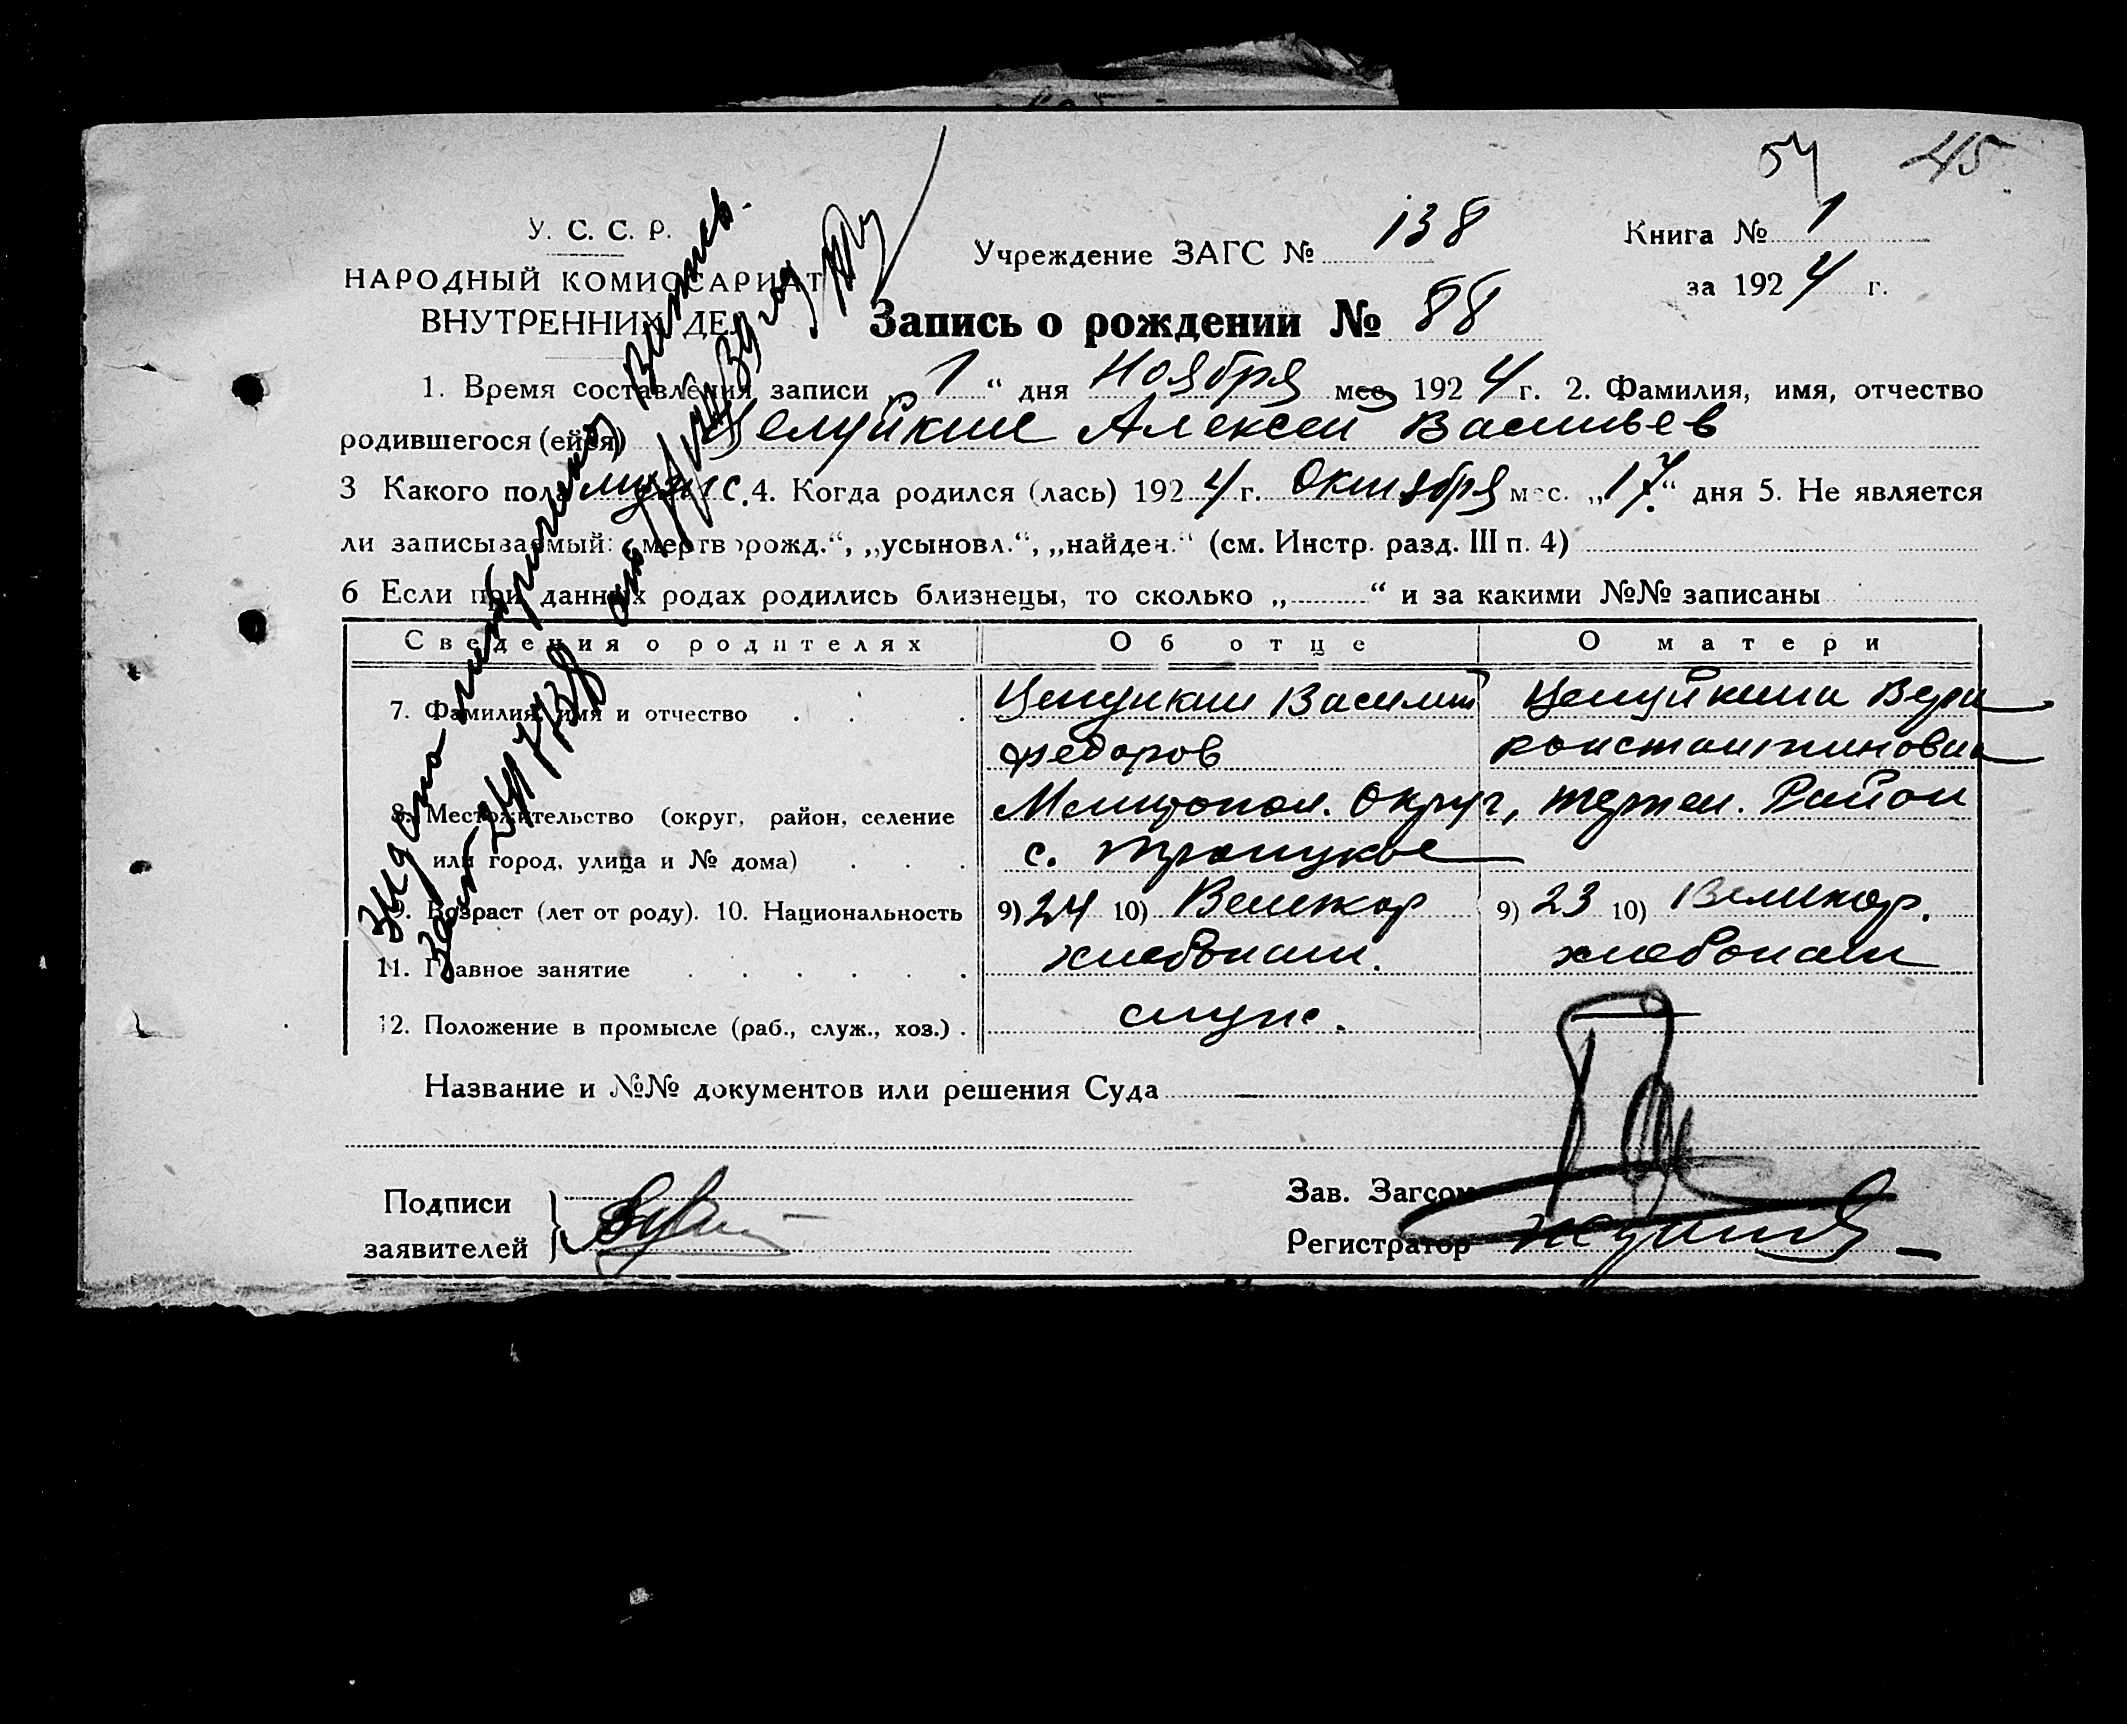 54 45
У. С. С. Р.
НАРОДНЫЙ КОМИССАРИАТ
ВНУТРЕННИХ ДЕЛ
Учреждение ЗАГС № 138
Книга № 1
за 1924 г.
Запись о рождении № 88
1. Время составления записи „1“ дня Ноября мес. 1924 г. 2. Фамилия, имя, отчество
родившегося (ейся) Целуйкин Алексей Васильев
3 Какого пола мужс. 4. Когда родился (лась) 1924 г. Октября мес. „17“ дня 5. Не является
ли записываемый: „мертворожд.“, „усыновл.“, „найден.“ (см. Инстр. разд. III п. 4)
6 Если при данных родах родились близнецы, то сколько „ “ и за какими №№ записаны
Сведения о родителях Об отце О матери
7. Фамилия, имя и отчество Целуйкин Василий Целуйкина Вера
Федоров Константиновна
8. Местожительство (округ, район, селение Мелитопол. Округ, Терпен. Район
или город, улица и № дома) с. Троицкое
9. Возраст (лет от роду). 10. Национальность 9) 24 10) Великор 9) 23 10) Великор.
11. Главное занятие хлебопаш. хлебопаш
12. Положение в промысле (раб., служ., хоз.)
Название и №№ документов или решения Суда
Подписи
заявителей
Зав. Загсом
Регистратор
Выдана метрическая Выпись